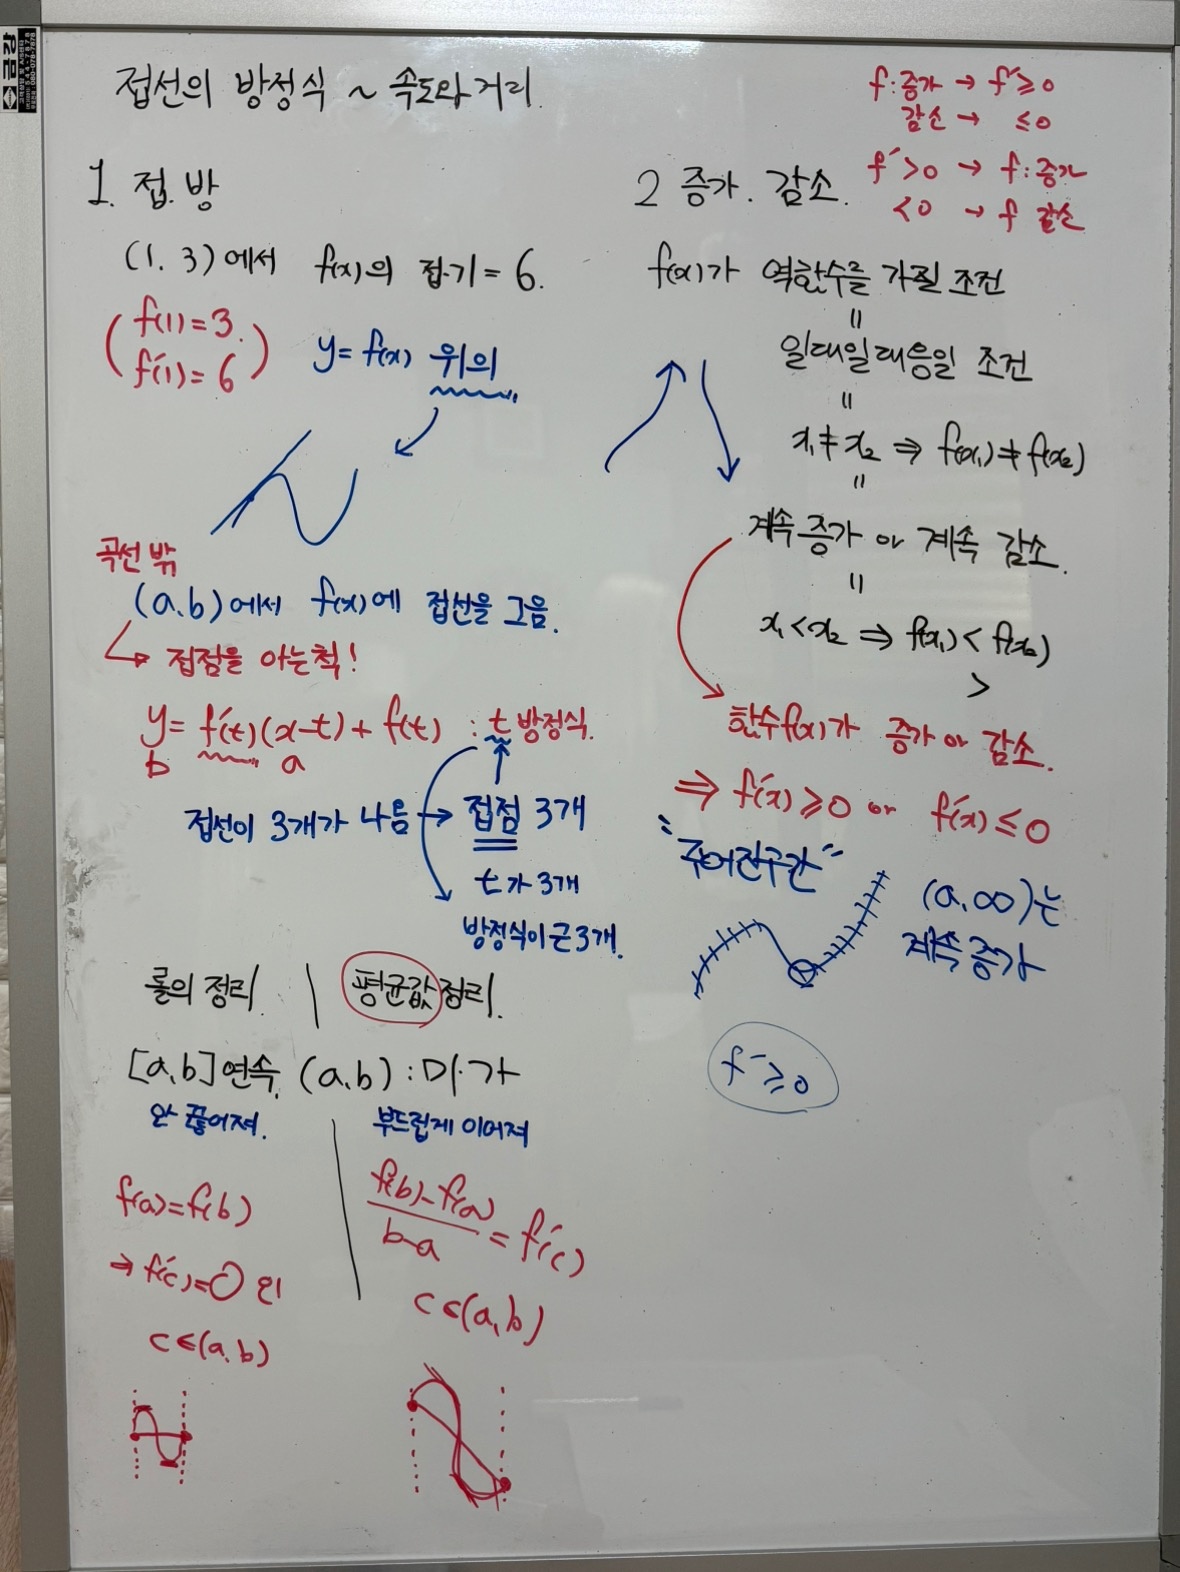 접선의 방정식 ~ 속도와 거리
1. 접. 방
(1. 3)에서 f(x)의 접.기 = 6.
f(1)=3.
f'(1)=6
y= f(x) 위의
곡선 밖
(a.b)에서 f(x)에 접선을 그음.
접점을 아는척!
y= f'(t)(x-t)+ f(t) : t 방정식.
b a
접선이 3개가 나옴 → 접점 3개
t가 3개
방정식이 근 3개.
롤의 정리 | 평균값 정리.
[a,b]연속, (a.b) : 미.가
안 끊어져. 부드럽게 이어져
f(a)=f(b)
→ f'(c)=0 인
c∈(a.b)
f(b)-f(a)
b-a
= f'(c)
c∈(a,b)
f:증가 → f'≥0
감소 → ≤0
f'>0 → f:증가
<0 → f 감소
2 증가. 감소.
f(x)가 역함수를 가질 조건
=
일대일대응일 조건
=
x₁≠x₂ ⇒ f(x₁)≠f(x₂)
=
계속 증가 or 계속 감소.
=
x₁<x₂ ⇒ f(x₁)< f(x₂)
>
함수f(x)가 증가 or 감소.
⇒ f'(x)≥0 or f'(x)≤0
"주어진구간"
(a,∞)는
계속 증가
f'≥0